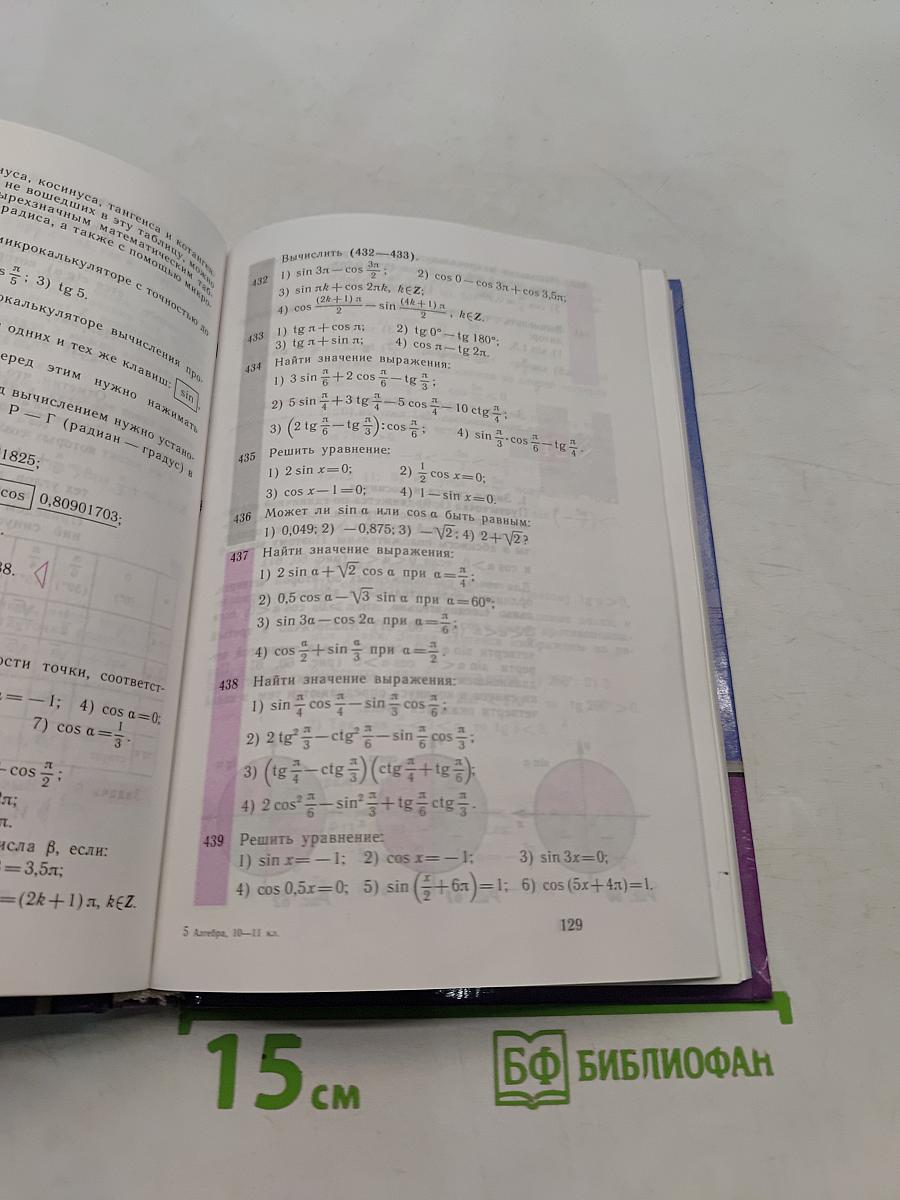 нуса, косинуса, тангенса и котанген-
не вошедших в эту таблицу, можно
ырехзначным математическим таб-
радиса, а также с помощью микро-
микрокалькуляторе с точностью до
s π/5; 3) tg 5.
рокалькуляторе вычисления про-
одних и тех же клавиш: sin,
еред этим нужно нажимать
д вычислением нужно устано-
Р — Г (радиан — градус) в
1825;
cos 0,80901703;
38.
ости точки, соответст-
α = −1; 4) cos α = 0;
7) cos α = 1/3.
cos π/2;
2π;
π.
исла β, если:
= 3,5π;
= (2k + 1) π, k∈Z.
Вычислить (432—433).
432 1) sin 3π − cos 3π/2; 2) cos 0 − cos 3π + cos 3,5π;
3) sin πk + cos 2πk, k∈Z;
4) cos (2k+1)π/2 − sin (4k+1)π/2, k∈Z.
433 1) tg π + cos π; 2) tg 0° − tg 180°;
3) tg π + sin π; 4) cos π − tg 2π.
434 Найти значение выражения:
1) 3 sin π/6 + 2 cos π/6 − tg π/3;
2) 5 sin π/4 + 3 tg π/4 − 5 cos π/4 − 10 ctg π/4;
3) (2 tg π/6 − tg π/3) : cos π/6; 4) sin π/3 · cos π/6 − tg π/4.
435 Решить уравнение:
1) 2 sin x = 0; 2) 1/2 cos x = 0;
3) cos x − 1 = 0; 4) 1 − sin x = 0.
436 Может ли sin α или cos α быть равным:
1) 0,049; 2) −0,875; 3) −√2; 4) 2 + √2?
437 Найти значение выражения:
1) 2 sin α + √2 cos α при α = π/4;
2) 0,5 cos α − √3 sin α при α = 60°;
3) sin 3α − cos 2α при α = π/6;
4) cos α/2 + sin α/3 при α = π/2.
438 Найти значение выражения:
1) sin π/4 cos π/4 − sin π/3 cos π/6;
2) 2 tg² π/3 − ctg² π/6 − sin π/6 cos π/3;
3) (tg π/4 − ctg π/3) (ctg π/4 + tg π/6);
4) 2 cos² π/6 − sin² π/3 + tg π/6 ctg π/3.
439 Решить уравнение:
1) sin x = −1; 2) cos x = −1; 3) sin 3x = 0;
4) cos 0,5x = 0; 5) sin (x/2 + 6π) = 1; 6) cos (5x + 4π) = 1.
5 Алгебра, 10—11 кл.
129
15 см
БФ БИБЛИОФАН